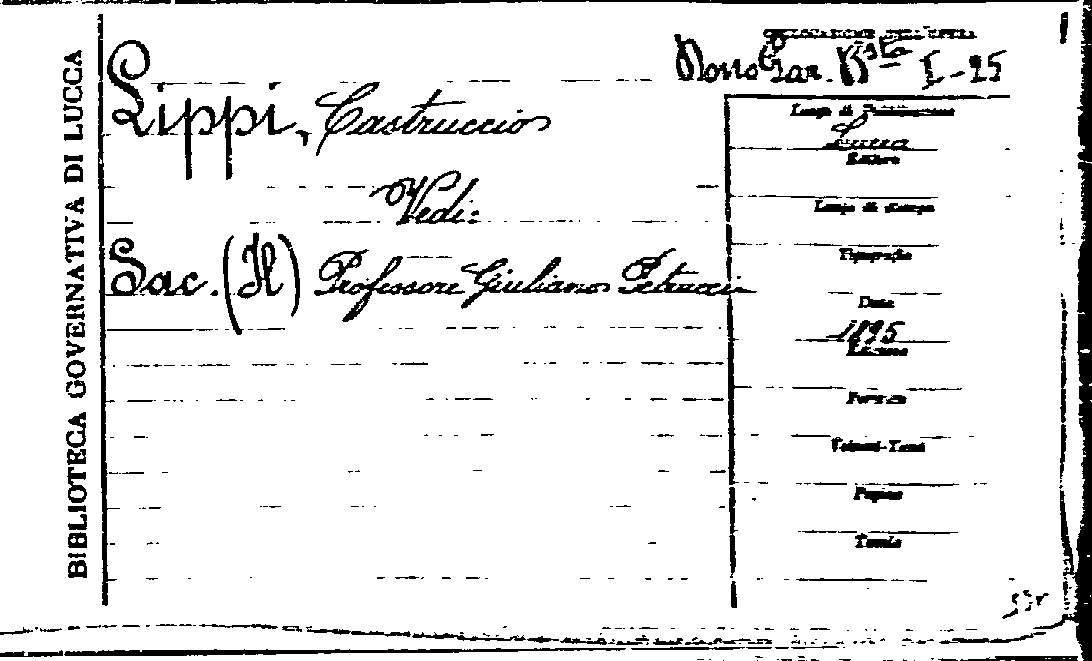 BIBLIOTECA GOVERNATIVA DI LUCCA
COLLOCAZIONE DELL'OPERA
I-25
Lippi, Castruccio
Vedi:
Sac. (Il) Professore Giuliano Petrucci
Luogo di Pubblicazione
Lucca
Editore
Luogo di stampa
Tipografia
Data
1895
Edizione
Formato
Volumi-Tomi
Pagine
Tavole